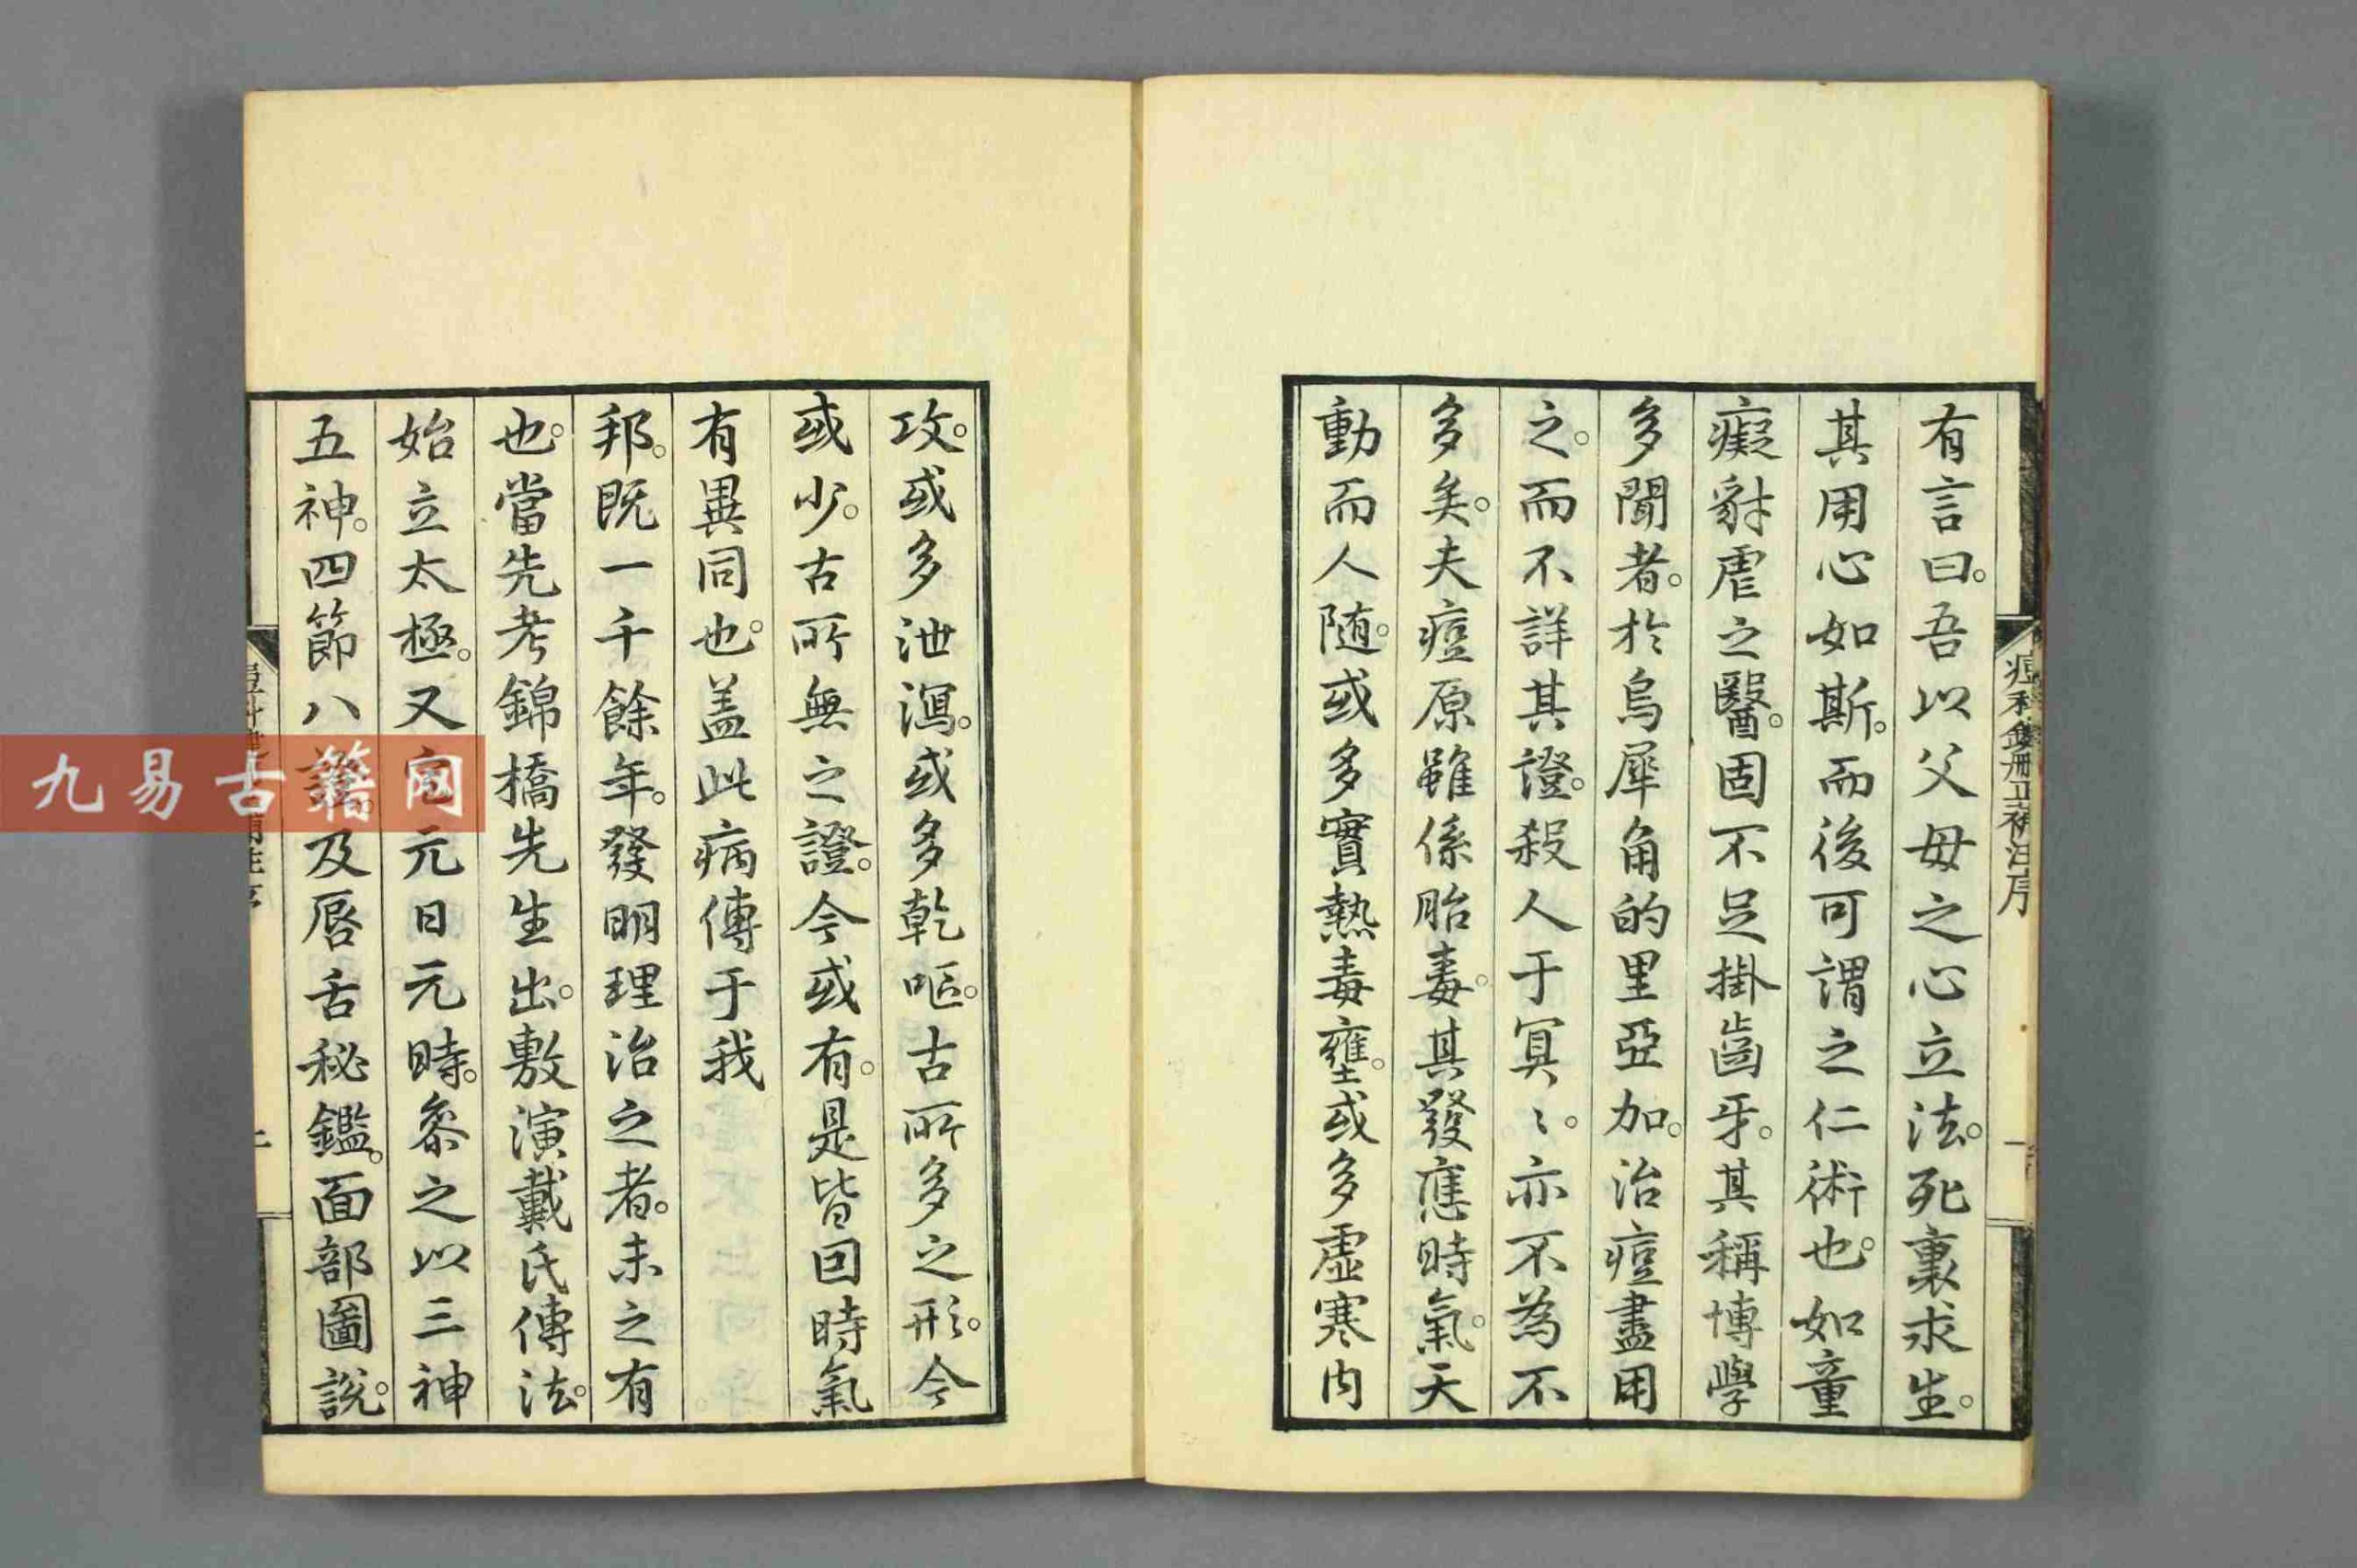 有言曰。吾以父母之心立法。死裏求生。
其用心如斯。而後可謂之仁術也。如童
癡豺虐之醫。固不足掛齒牙。其稱博學
多聞者。於烏犀角的里亞加。治痘盡用
之。而不詳其證。殺人于冥〻。亦不為不
多矣。夫痘原雖係胎毒。其發應時氣。天
動而人随。或多實熱毒壅。或多虛寒内
攻。或多泄瀉。或多乾嘔。古所多之形。今
或少。古所無之證。今或有。是皆因時氣
有異同也。盖此病傳于我
邦。既一千餘年。發明理治之者。未之有
也。當先考錦橋先生出。敷演戴氏傳法。
始立太極。又元日元時。叅之以三神
五神。四節八證。及唇舌秘鑑。面部圖說。
痘科鍵刪正補注序
九易古籍网